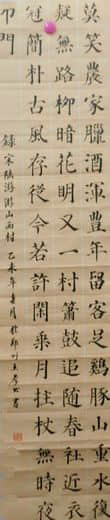 莫笑農家臘酒渾豐年留客足雞豚山重水復
疑無路柳暗花明又一村簫鼓追隨春社近衣
冠簡朴古風存從今若許閑乘月拄杖無時夜
叩門
錄宋陸游游山西村 乙未年